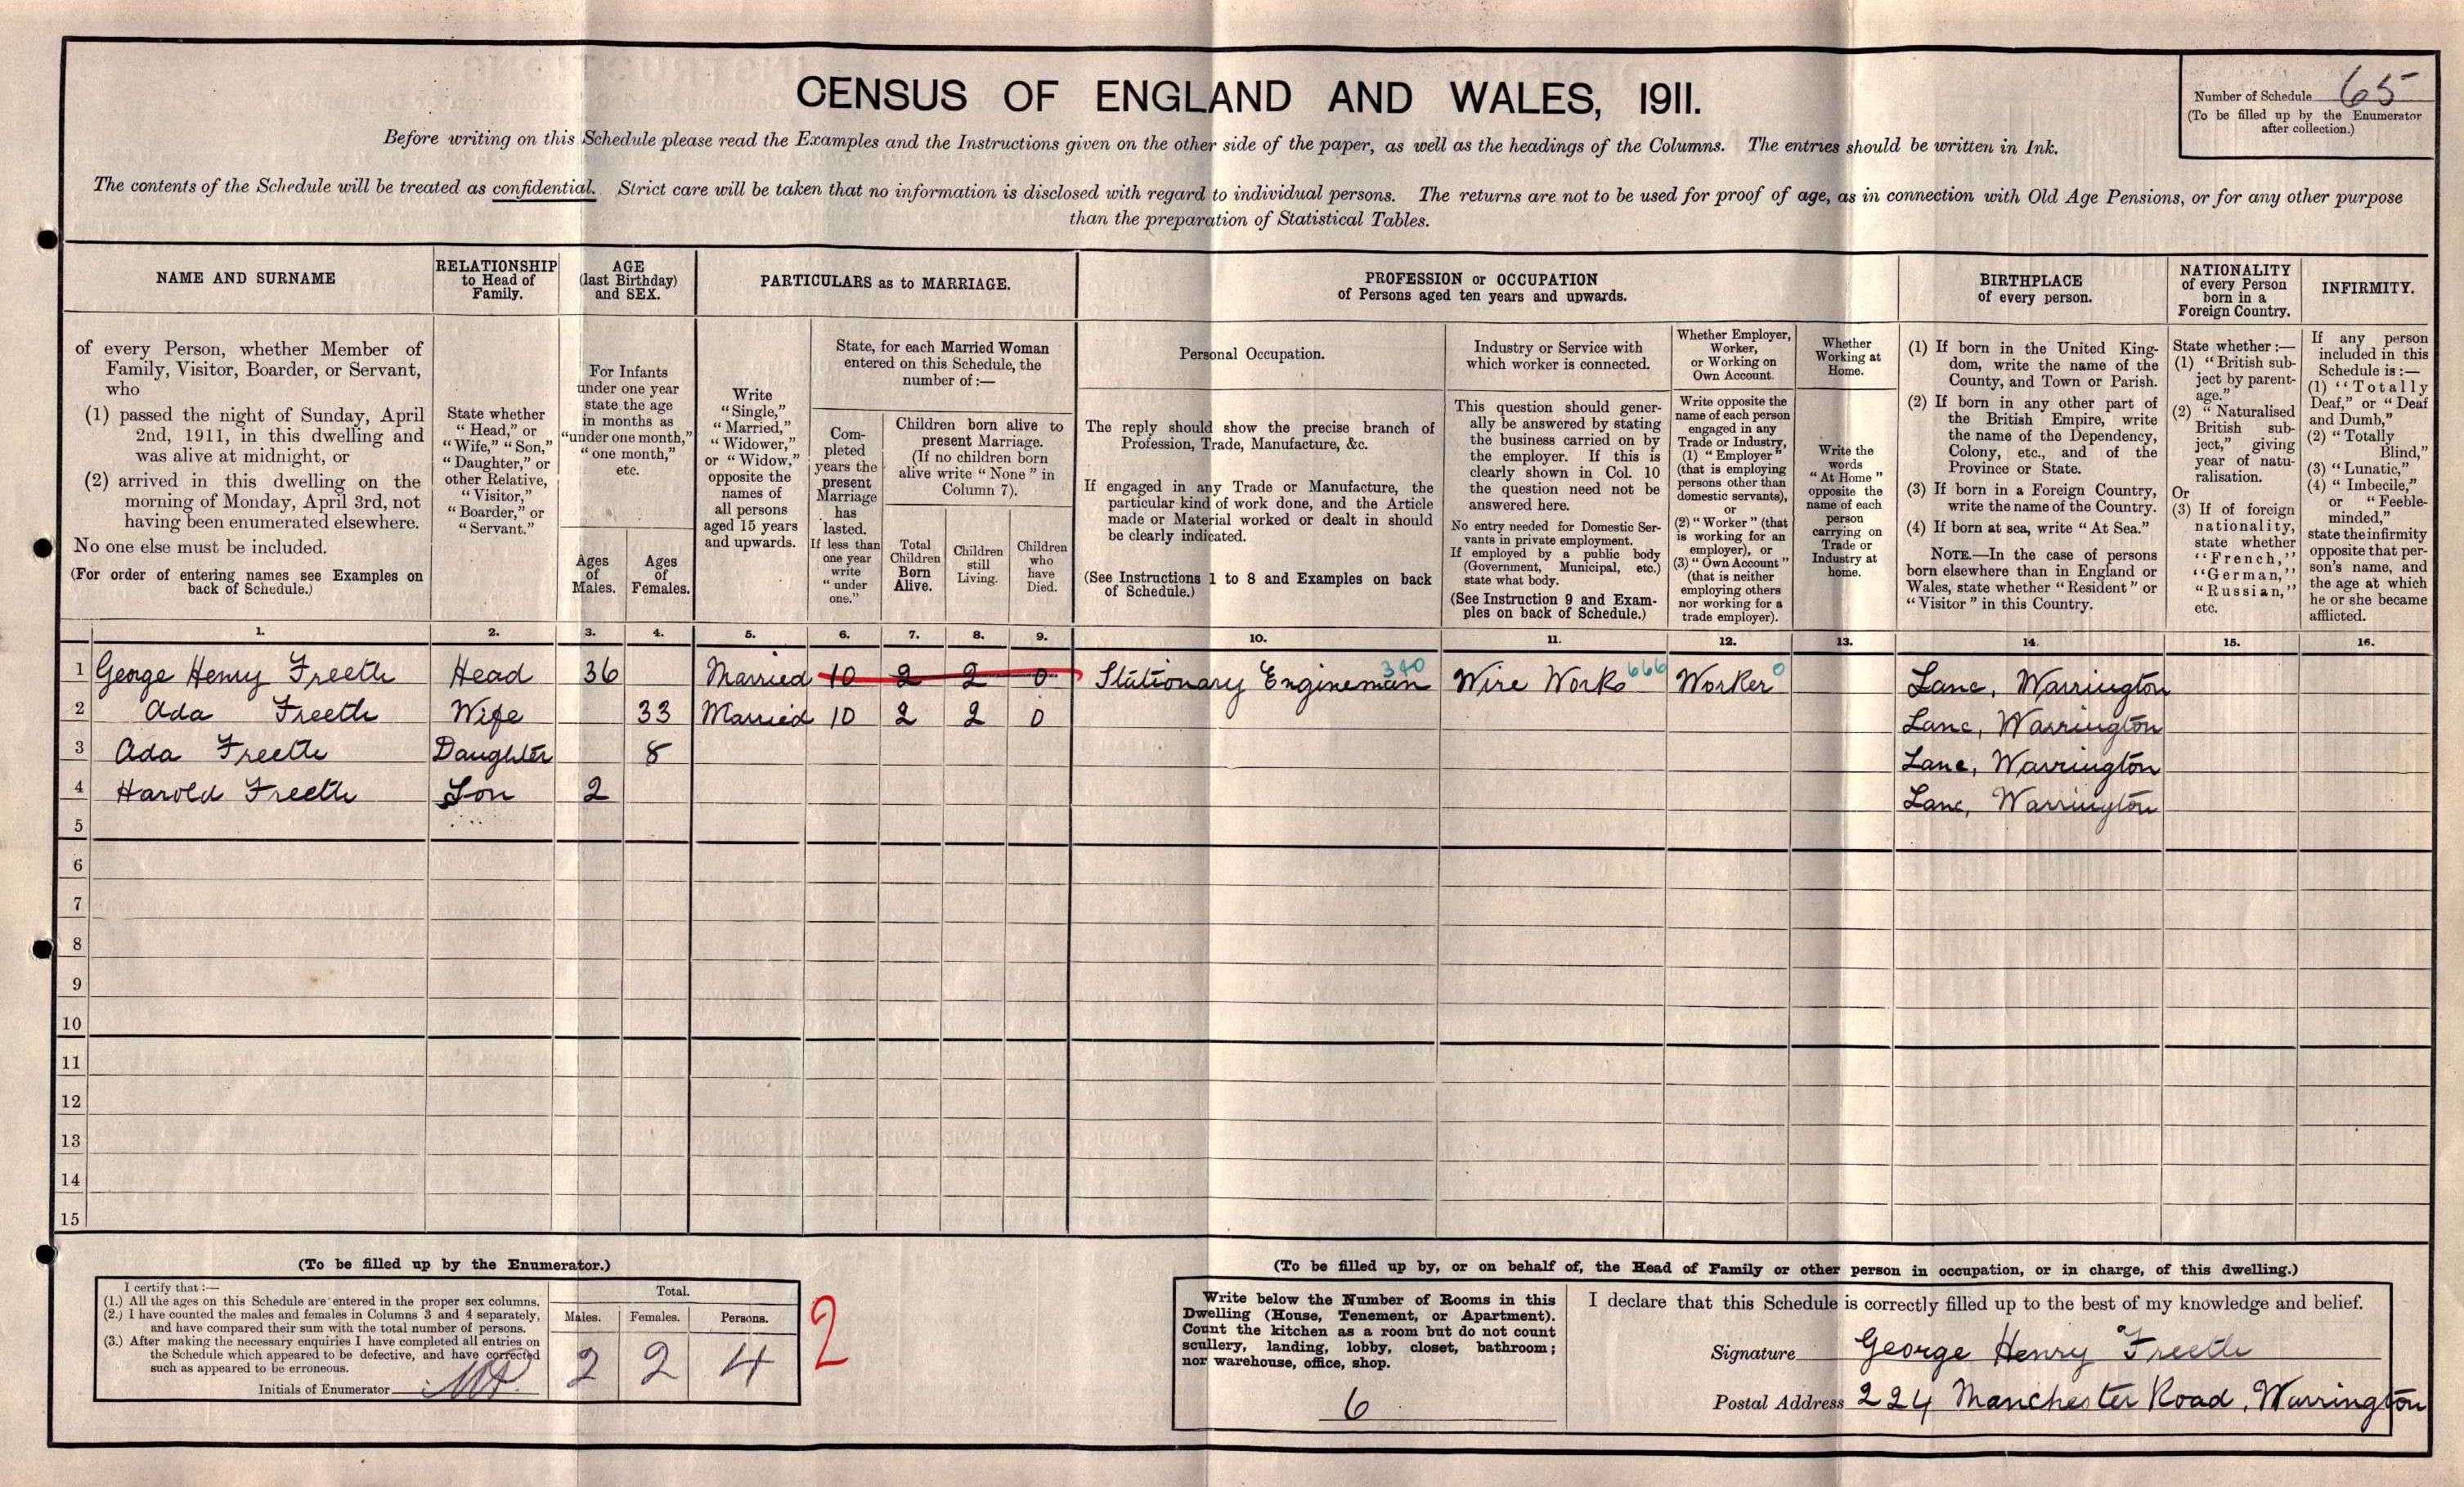 CENSUS OF ENGLAND AND WALES, 1911.
Number of Schedule 65
(To be filled up by the Enumerator
after collection.)
Before writing on this Schedule please read the Examples and the Instructions given on the other side of the paper, as well as the headings of the Columns. The entries should be written in Ink.
The contents of the Schedule will be treated as confidential. Strict care will be taken that no information is disclosed with regard to individual persons. The returns are not to be used for proof of age, as in connection with Old Age Pensions, or for any other purpose
than the preparation of Statistical Tables.
NAME AND SURNAME
of every Person, whether Member of
Family, Visitor, Boarder, or Servant,
who
(1) passed the night of Sunday, April
2nd, 1911, in this dwelling and
was alive at midnight, or
(2) arrived in this dwelling on the
morning of Monday, April 3rd, not
having been enumerated elsewhere.
No one else must be included.
(For order of entering names see Examples on
back of Schedule.)
RELATIONSHIP
to Head of
Family.
State whether
"Head," or
"Wife," "Son,"
"Daughter," or
other Relative,
"Visitor,"
"Boarder," or
"Servant."
AGE
(last Birthday)
and SEX.
For Infants
under one year
state the age
in months as
"under one month,"
"one month,"
etc.
Ages
of
Males.
Ages
of
Females.
PARTICULARS as to MARRIAGE.
Write
"Single,"
"Married,"
"Widower,"
or "Widow,"
opposite the
names of
all persons
aged 15 years
and upwards.
State, for each Married Woman
entered on this Schedule, the
number of :—
Com-
pleted
years the
present
Marriage
has
lasted.
If less than
one year
write
"under
one."
Children born alive to
present Marriage.
(If no children born
alive write "None" in
Column 7).
Total
Children
Born
Alive.
Children
still
Living.
Children
who
have
Died.
PROFESSION or OCCUPATION
of Persons aged ten years and upwards.
Personal Occupation.
The reply should show the precise branch of
Profession, Trade, Manufacture, &c.
If engaged in any Trade or Manufacture, the
particular kind of work done, and the Article
made or Material worked or dealt in should
be clearly indicated.
(See Instructions 1 to 8 and Examples on back
of Schedule.)
Industry or Service with
which worker is connected.
This question should gener-
ally be answered by stating
the business carried on by
the employer. If this is
clearly shown in Col. 10
the question need not be
answered here.
No entry needed for Domestic Ser-
vants in private employment.
If employed by a public body
(Government, Municipal, etc.)
state what body.
(See Instruction 9 and Exam-
ples on back of Schedule.)
Whether Employer,
Worker,
or Working on
Own Account.
Write opposite the
name of each person
engaged in any
Trade or Industry,
(1) "Employer"
(that is employing
persons other than
domestic servants),
or
(2) "Worker" (that
is working for an
employer), or
(3) "Own Account"
(that is neither
employing others
nor working for a
trade employer).
Whether
Working at
Home.
Write the
words
"At Home"
opposite the
name of each
person
carrying on
Trade or
Industry at
home.
BIRTHPLACE
of every person.
(1) If born in the United King-
dom, write the name of the
County, and Town or Parish.
(2) If born in any other part of
the British Empire, write
the name of the Dependency,
Colony, etc., and of the
Province or State.
(3) If born in a Foreign Country,
write the name of the Country.
(4) If born at sea, write "At Sea."
NOTE.—In the case of persons
born elsewhere than in England or
Wales, state whether "Resident" or
"Visitor" in this Country.
NATIONALITY
of every Person
born in a
Foreign Country.
State whether :—
(1) "British sub-
ject by parent-
age."
(2) "Naturalised
British sub-
ject," giving
year of natu-
ralisation.
Or
(3) If of foreign
nationality,
state whether
"French,"
"German,"
"Russian,"
etc.
INFIRMITY.
If any person
included in this
Schedule is :—
(1) "Totally
Deaf," or "Deaf
and Dumb,"
(2) "Totally
Blind,"
(3) "Lunatic,"
(4) "Imbecile,"
or "Feeble-
minded,"
state the infirmity
opposite that per-
son's name, and
the age at which
he or she became
afflicted.
1. 2. 3. 4. 5. 6. 7. 8. 9. 10. 11. 12. 13. 14. 15. 16.
1 George Henry Freeth Head 36 Married 10 2 2 0 Stationary Engineman 340 Wire Works 666 Worker 0 Lanc, Warrington
2 Ada Freeth Wife 33 Married 10 2 2 0 Lanc, Warrington
3 Ada Freeth Daughter 8 Lanc, Warrington
4 Harold Freeth Son 2 Lanc, Warrington
5
6
7
8
9
10
11
12
13
14
15
(To be filled up by the Enumerator.)
I certify that :—
(1.) All the ages on this Schedule are entered in the proper sex columns.
(2.) I have counted the males and females in Columns 3 and 4 separately,
and have compared their sum with the total number of persons.
(3.) After making the necessary enquiries I have completed all entries on
the Schedule which appeared to be defective, and have corrected
such as appeared to be erroneous.
Initials of Enumerator
Total.
Males. Females. Persons.
2 2 4
2
(To be filled up by, or on behalf of, the Head of Family or other person in occupation, or in charge, of this dwelling.)
Write below the Number of Rooms in this
Dwelling (House, Tenement, or Apartment).
Count the kitchen as a room but do not count
scullery, landing, lobby, closet, bathroom;
nor warehouse, office, shop.
6
I declare that this Schedule is correctly filled up to the best of my knowledge and belief.
Signature George Henry Freeth
Postal Address 224 Manchester Road, Warrington